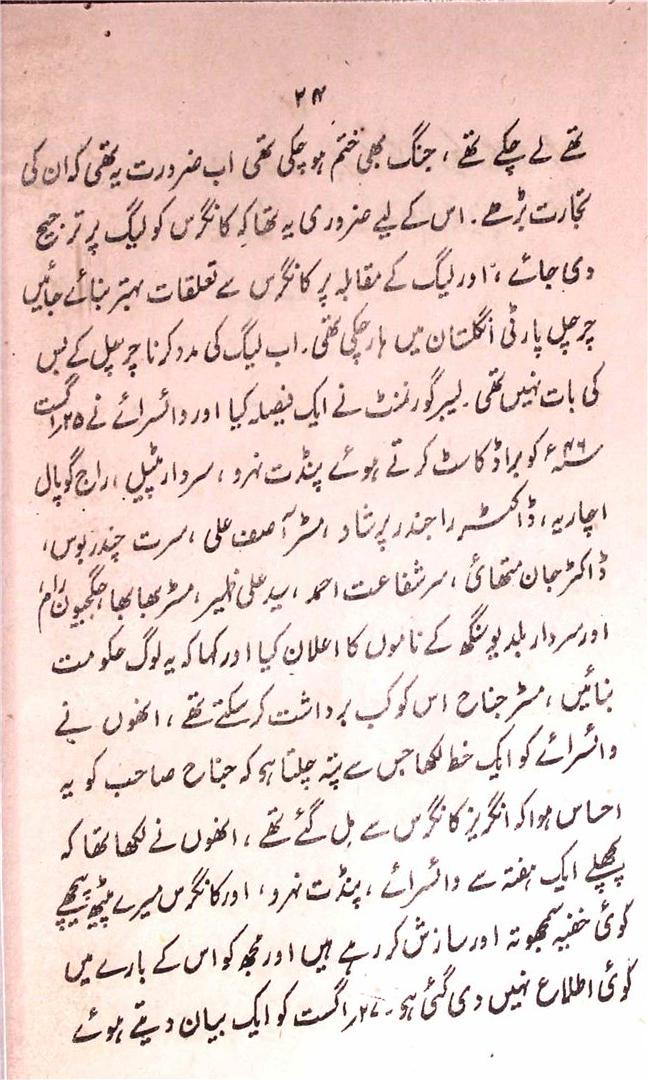 ۲۴
تھے لے چکے تھے ، جنگ بھی ختم ہو چکی تھی اب ضرورت یہ تھی کہ ان کی
تجارت بڑھے ۔ اس کے لیے ضروری یہ تھا کہ کانگرس کو لیگ پر ترجیح
دی جائے ، اور لیگ کے مقابلہ پر کانگرس سے تعلقات بہتر بنائے جائیں
چرچل پارٹی انگلستان میں ہار چکی تھی ۔ اب لیگ کی مدد کرنا چرچل کے بس
کی بات نہیں تھی ۔ لیبر گورنمنٹ نے ایک فیصلہ کیا اور وائسرائے نے ۲۵ اگست
۴۶ء کو براڈ کاسٹ کرتے ہوئے پنڈت نہرو ، سردار پٹیل ، راج گوپال
اچاریہ ، ڈاکٹر راجندر پرشاد ، مسٹر آصف علی ، سرت چندر بوس ،
ڈاکٹر جان متھائی ، سر شفاعت احمد ، سید علی ظہیر ، مسٹر بھابھا ، جگجیون رام
اور سردار بلدیو سنگھ کے ناموں کا اعلان کیا اور کہا کہ یہ لوگ حکومت
بنائیں ، مسٹر جناح اس کو کب برداشت کر سکتے تھے ، انھوں نے
وائسرائے کو ایک خط لکھا جس سے پتہ چلتا ہو کہ جناح صاحب کو یہ
احساس ہوا کہ انگریز کانگرس سے مل گئے تھے ، انھوں نے لکھا تھا کہ
پچھلے ایک ہفتہ سے وائسرائے ، پنڈت نہرو ، اور کانگرس میرے پیٹھ پیچھے
کوئی خفیہ سمجھوتہ اور سازش کر رہے ہیں اور مجھ کو اس کے بارے میں
کوئی اطلاع نہیں دی گئی ہو ۔ ۲۷ اگست کو ایک بیان دیتے ہوئے